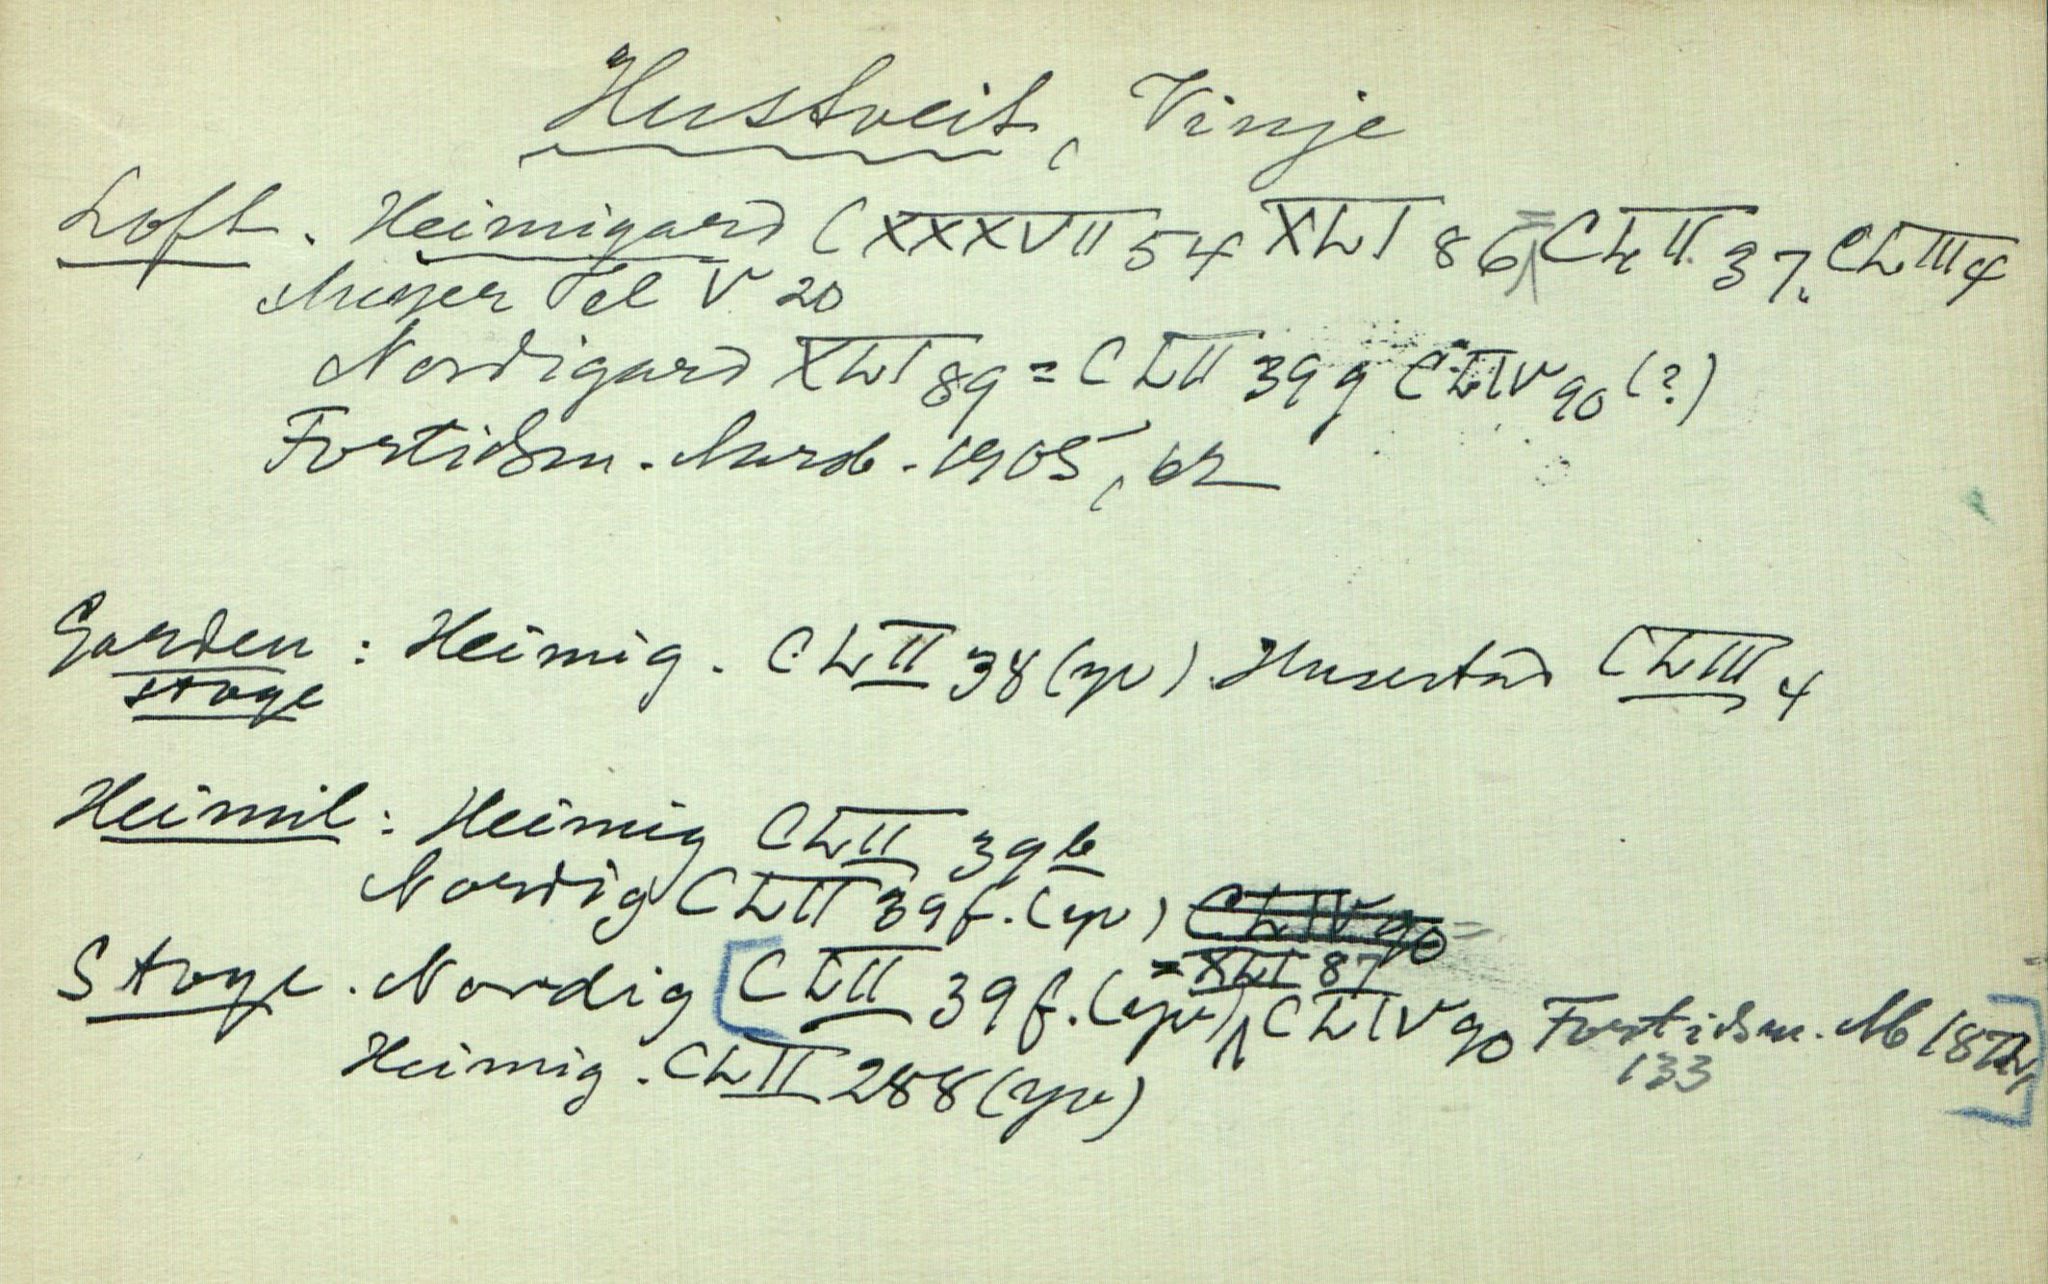 Hustveit, Vinje
Loft. Heimigard CXXXVII 54 XLI 86 = CLII 37, CLIII 4
Meyer Tel V 20
Nordigard XLI 89 = CLII 39 g CLIV 90 (?)
Fortidsm. Aarsb. 1905, 62
Garden : Heimig. CLII 38 (yv). Husestad CLIII 4
stoge
Heimil : Heimig CLII 39 b
Nordig CLII 39 f. (yv) CLIV 90
= XLI 87
Stoge. Nordig [CLII 39 f. (yv) CLIV 90 Fortidsm. M 1872,]
133
Heimig. CLII 288 (yv)